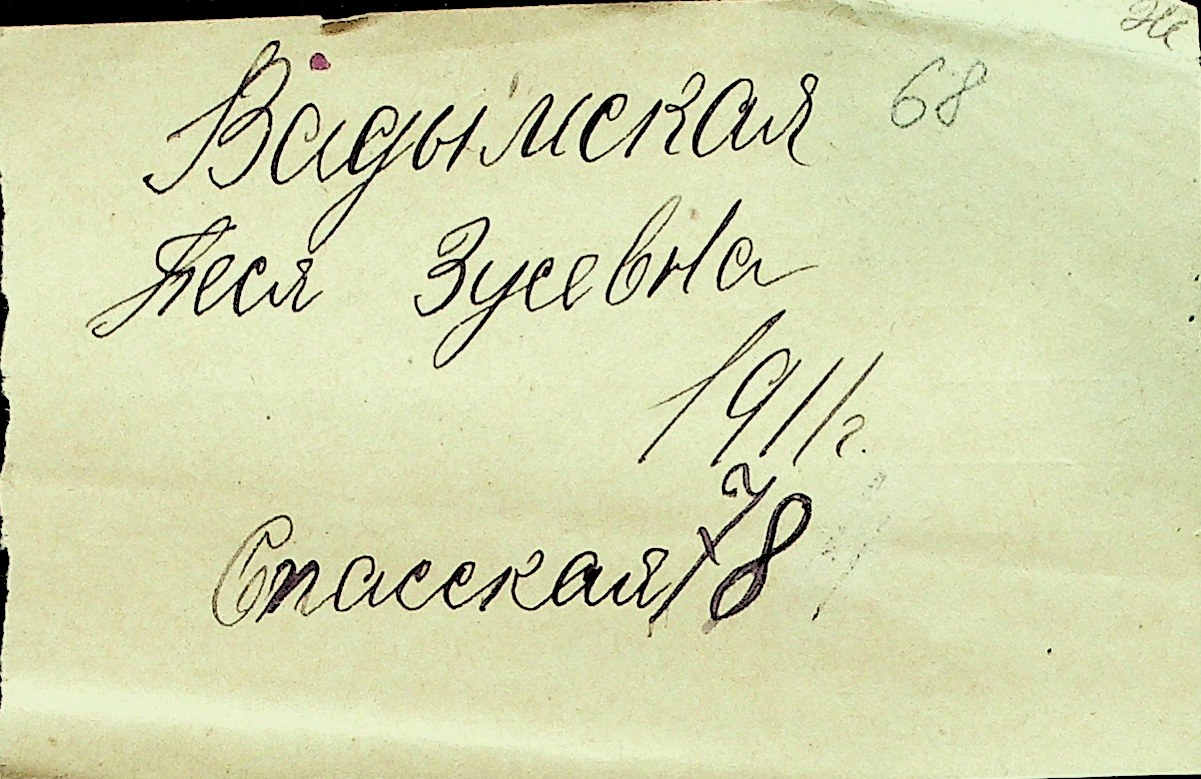 Вадымская 68
Песя Зусевна
1911г.
Спасская 78